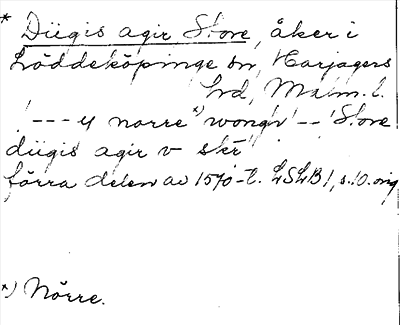 * Diigis agir Store, åker i
Löddeköpinge sn, Harjagers
hd, Malm. l.
! --- y norre *) wongr -- ! Store
diigis agir v skr
förra delen av 1570-t. LSLB 1, s. 10. orig
*) Nörre.